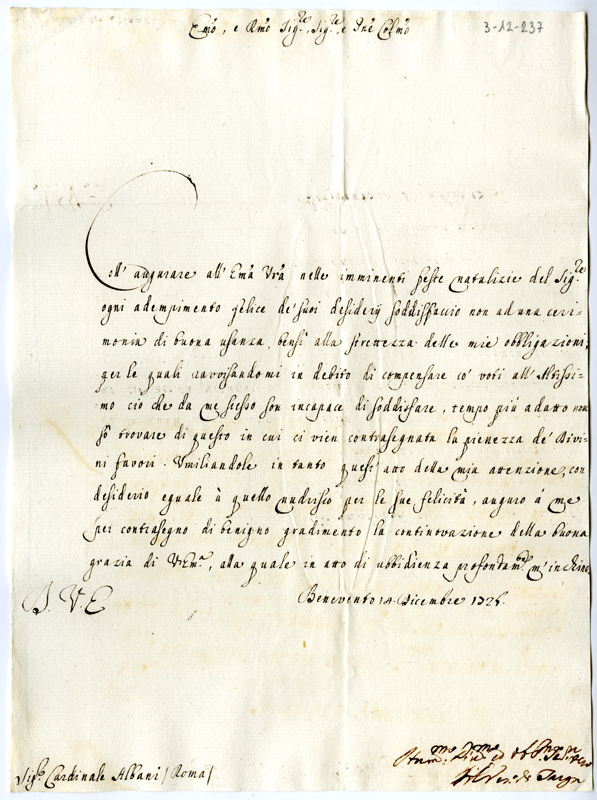 3-12-237
Emõ, e Rmõ Sig.re, Sig.re, e Pnẽ Colmõ
Coll' augurare all' Emã Vrã nelle imminenti feste natalizie del Sig.re
ogni adempimento felice de' suoi desiderij soddisfaccio non ad una ceri-
monia di buona usanza, bensì alla strettezza delle mie obbligazioni;
per le quali ravvisandomi in debito di compensare co' voti all' Altissi-
mo ciò che da me stesso son incapace di soddisfare, tempo più adatto non
sò trovare di questo in cui ci vien contrasegnata la pienezza de' Divi-
ni favori. Umiliandole in tanto quest' atto della mia attenzione, con
desiderio eguale à quello nudrisco per le sue felicità, auguro à me
per contrasegno di benigno gradimento la continovazione della buona
grazia di V. Em.a, alla quale in atto di ubbidienza profondam.te m' inchino
D. V. E
Benevento 14 Dicembre 1725.
Sig.r Cardinale Albani / Roma /
Hum.mo